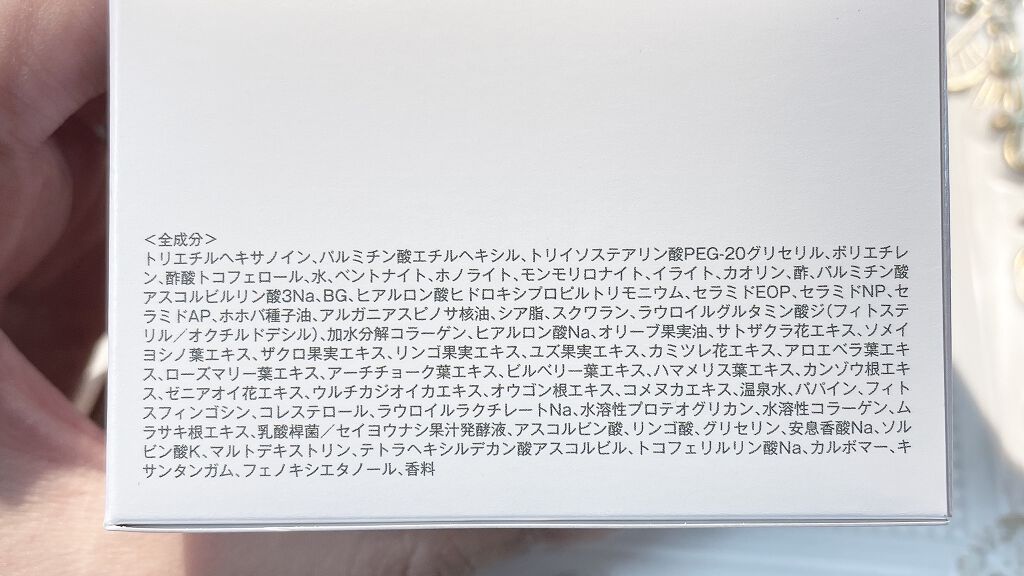 ＜全成分＞
トリエチルヘキサノイン、パルミチン酸エチルヘキシル、トリイソステアリン酸PEG-20グリセリル、ポリエチレ
ン、酢酸トコフェロール、水、ベントナイト、ホノライト、モンモリロナイト、イライト、カオリン、酢、パルミチン酸
アスコルビルリン酸3Na、BG、ヒアルロン酸ヒドロキシプロピルトリモニウム、セラミドEOP、セラミドNP、セ
ラミドAP、ホホバ種子油、アルガニアスピノサ核油、シア脂、スクワラン、ラウロイルグルタミン酸ジ(フィトステ
リル／オクチルドデシル)、加水分解コラーゲン、ヒアルロン酸Na、オリーブ果実油、サトザクラ花エキス、ソメイ
ヨシノ葉エキス、ザクロ果実エキス、リンゴ果実エキス、ユズ果実エキス、カミツレ花エキス、アロエベラ葉エキ
ス、ローズマリー葉エキス、アーチチョーク葉エキス、ビルベリー葉エキス、ハマメリス葉エキス、カンゾウ根エキ
ス、ゼニアオイ花エキス、ウルチカジオイカエキス、オウゴン根エキス、コメヌカエキス、温泉水、パパイン、フィト
スフィンゴシン、コレステロール、ラウロイルラクチレートNa、水溶性プロテオグリカン、水溶性コラーゲン、ム
ラサキ根エキス、乳酸桿菌／セイヨウナシ果汁発酵液、アスコルビン酸、リンゴ酸、グリセリン、安息香酸Na、ソル
ビン酸K、マルトデキストリン、テトラヘキシルデカン酸アスコルビル、トコフェリルリン酸Na、カルボマー、キ
サンタンガム、フェノキシエタノール、香料